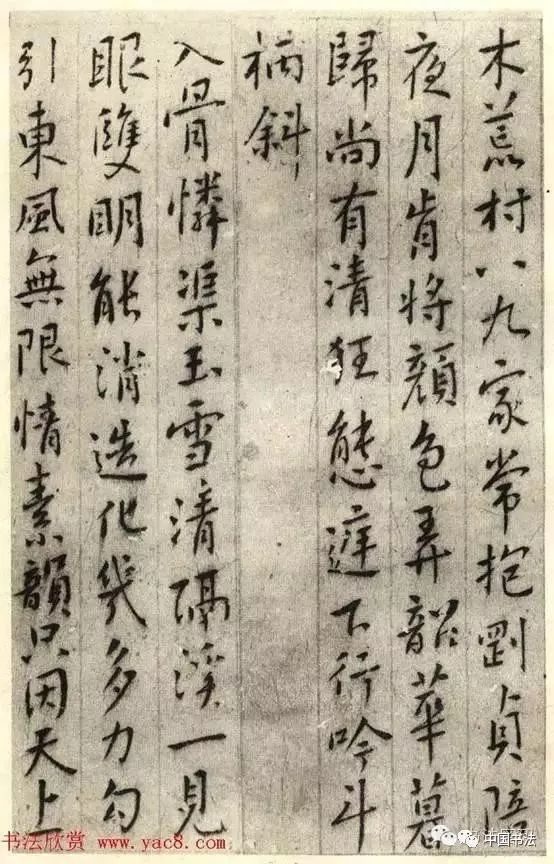 木荒村八九家常抱剛貞陪
夜月肯將顏色弄韶華暮
歸尚有清狂態遲下行吟斗
柄斜
入骨憐渠玉雪清隔溪一見
眼雙明能消造化幾多力勾
引東風無限情素韻只因天上
书法欣赏 www.yac8.com
中国书法